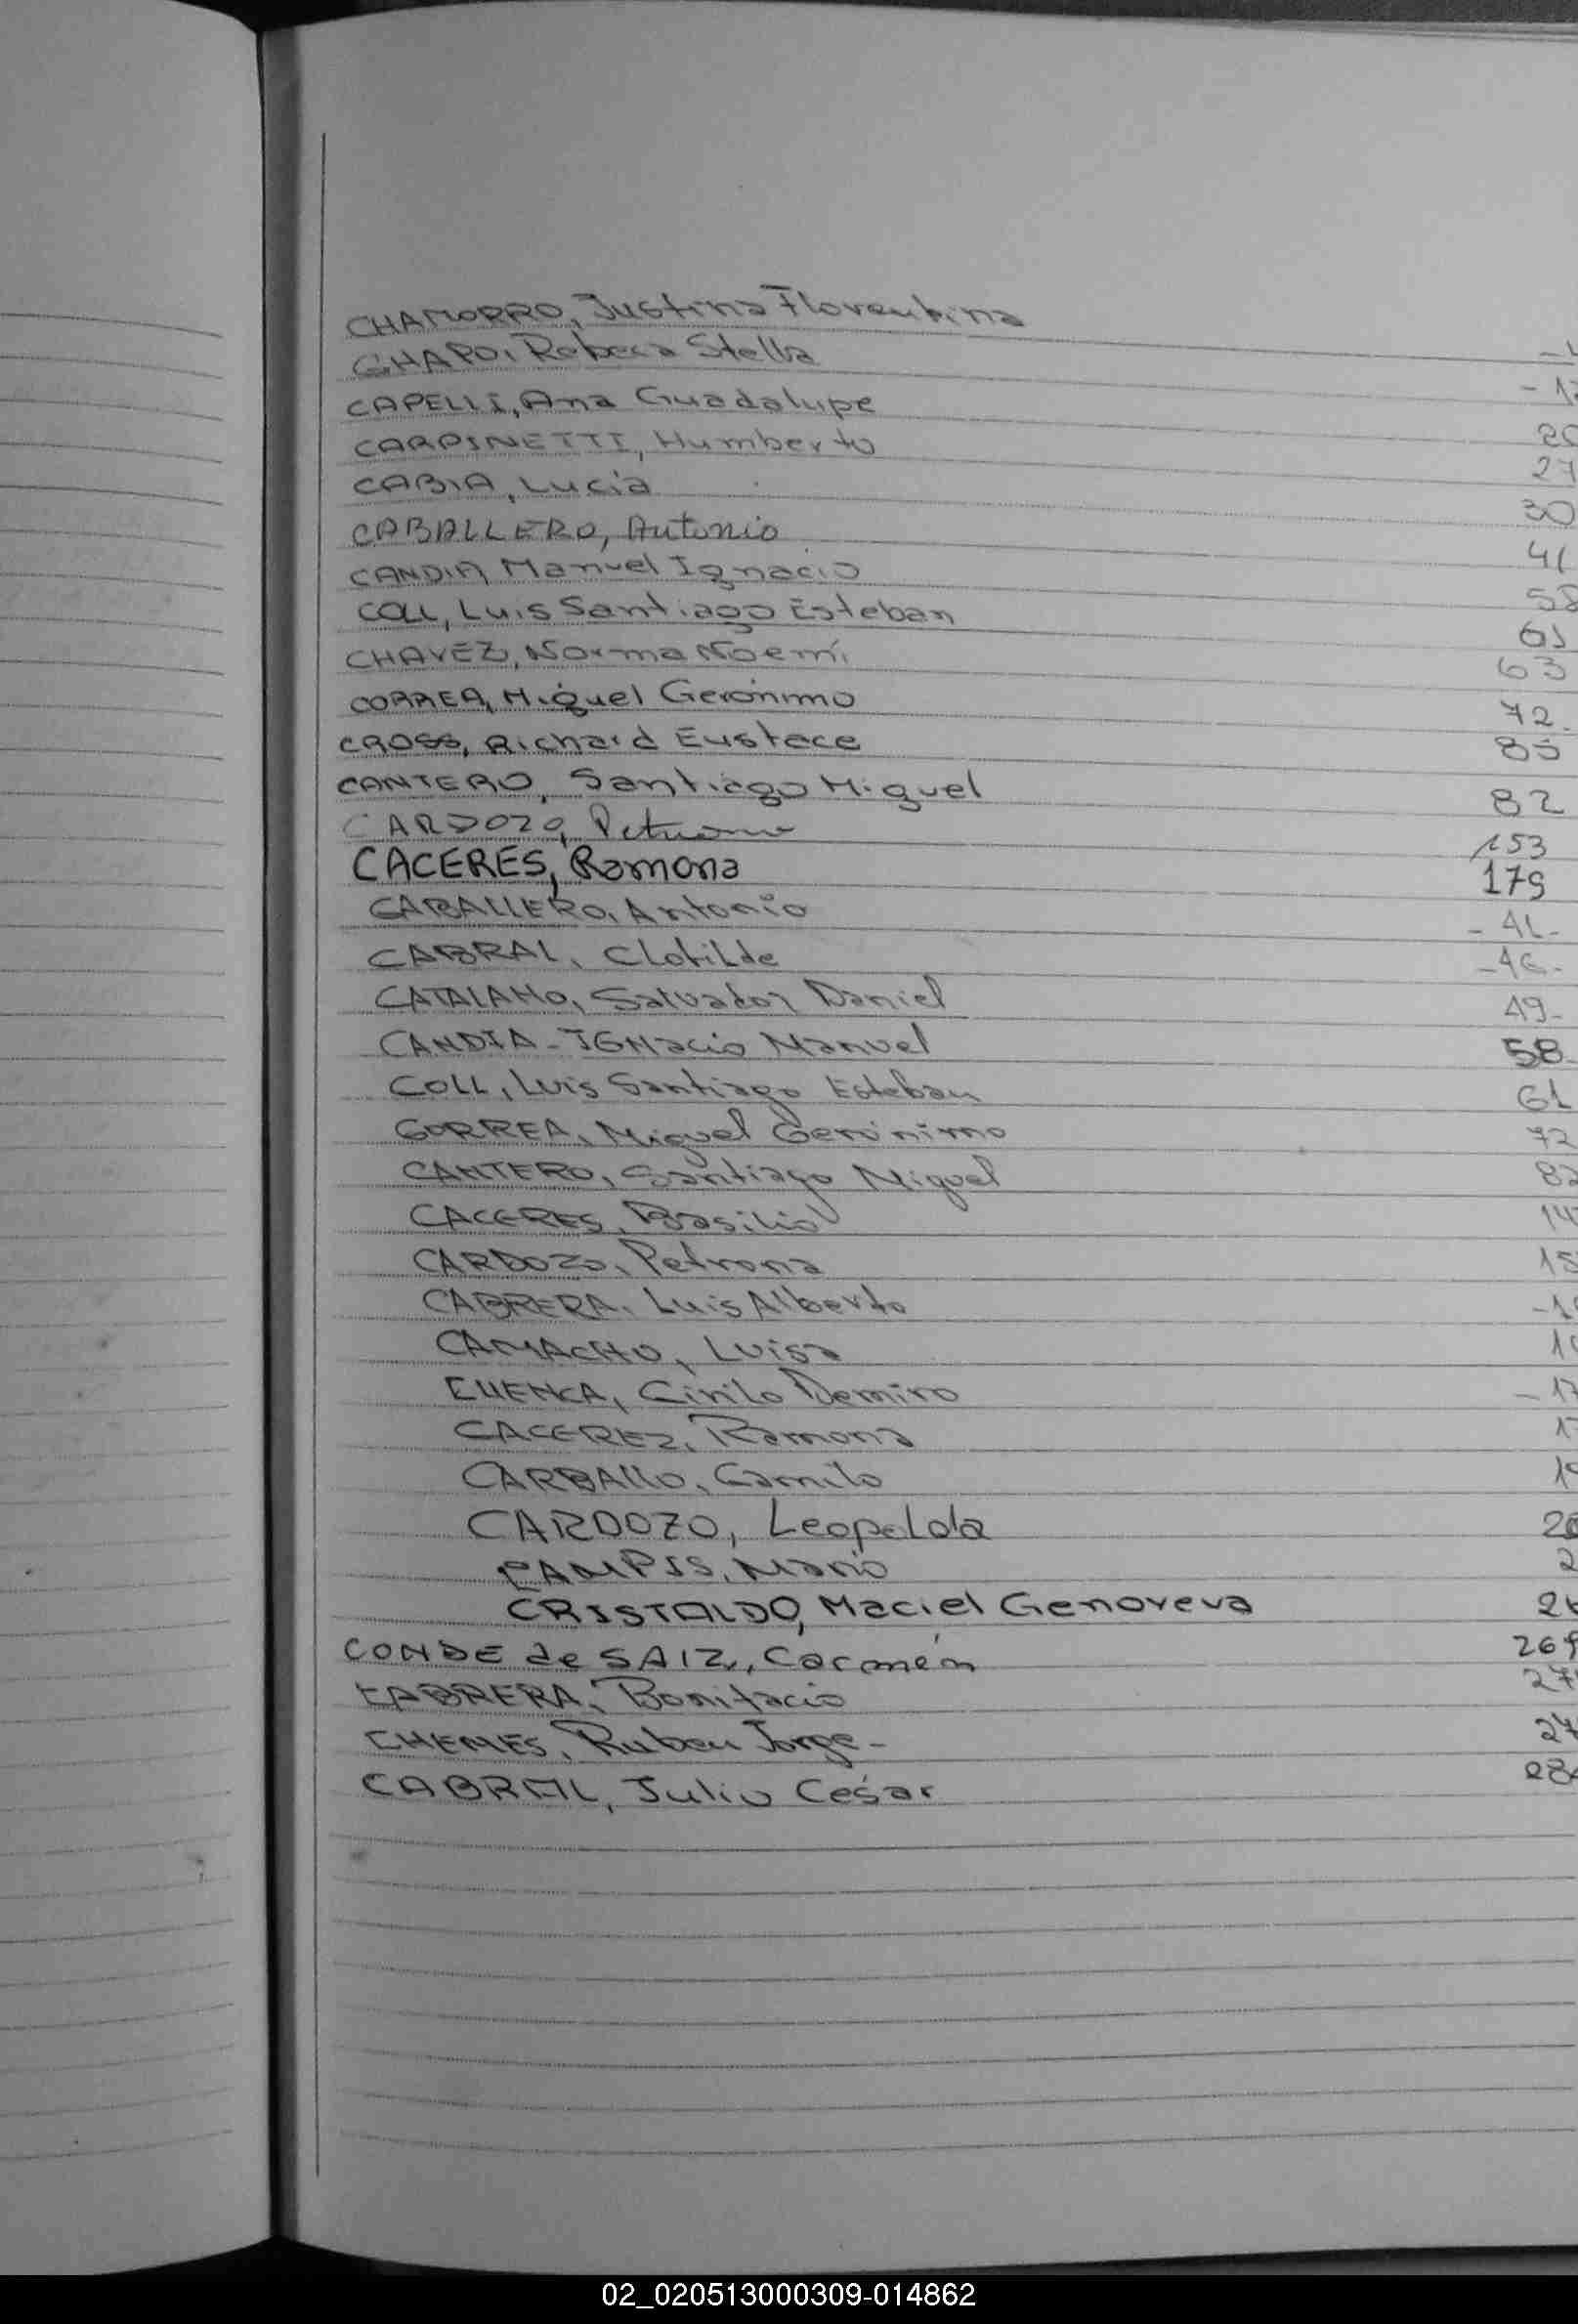 CHAMORRO, Justina Florentina
CHAPO, Rebeca Stella
CAPELLI, Ana Guadalupe
CARPINETTI, Humberto 27
CABIA, Lucia 30
CABALLERO, Antonio 41
CANDIA, Manuel Ignacio 58
COLL, Luis Santiago Esteban 61
CHAVEZ, Norma Noemí 63
CORREA, Miguel Gerónimo 72
CROSS, Richard Eustece 85
CANTERO, Santiago Miguel 82
CARDOZO, Petrona 153
CACERES, Ramona 179
CABALLERO, Antonio - 41 -
CABRAL, Clotilde - 46 -
CATALANO, Salvador Daniel 49 -
CANDIA - IGNacio Manuel 58 -
COLL, Luis Santiago Esteban 61
CORREA, Miguel Gerónimo 72
CANTERO, Santiago Miguel 82
CACERES, Basilio
CARDOZO, Petrona
CABRERA, Luis Alberto
CAMACHO, Luisa
CUENCA, Cirilo Demiro
CACEREZ, Ramona
CARBALLO, Camilo
CARDOZO, Leopolda
CAMPIS, Mario
CRISTALDO, Maciel Genoveva
CONDE de SAIZ, Carmén 269
CABRERA, Bonifacio
CHEMES, Ruben Jorge -
CABRAL, Julio César
02_020513000309-014862